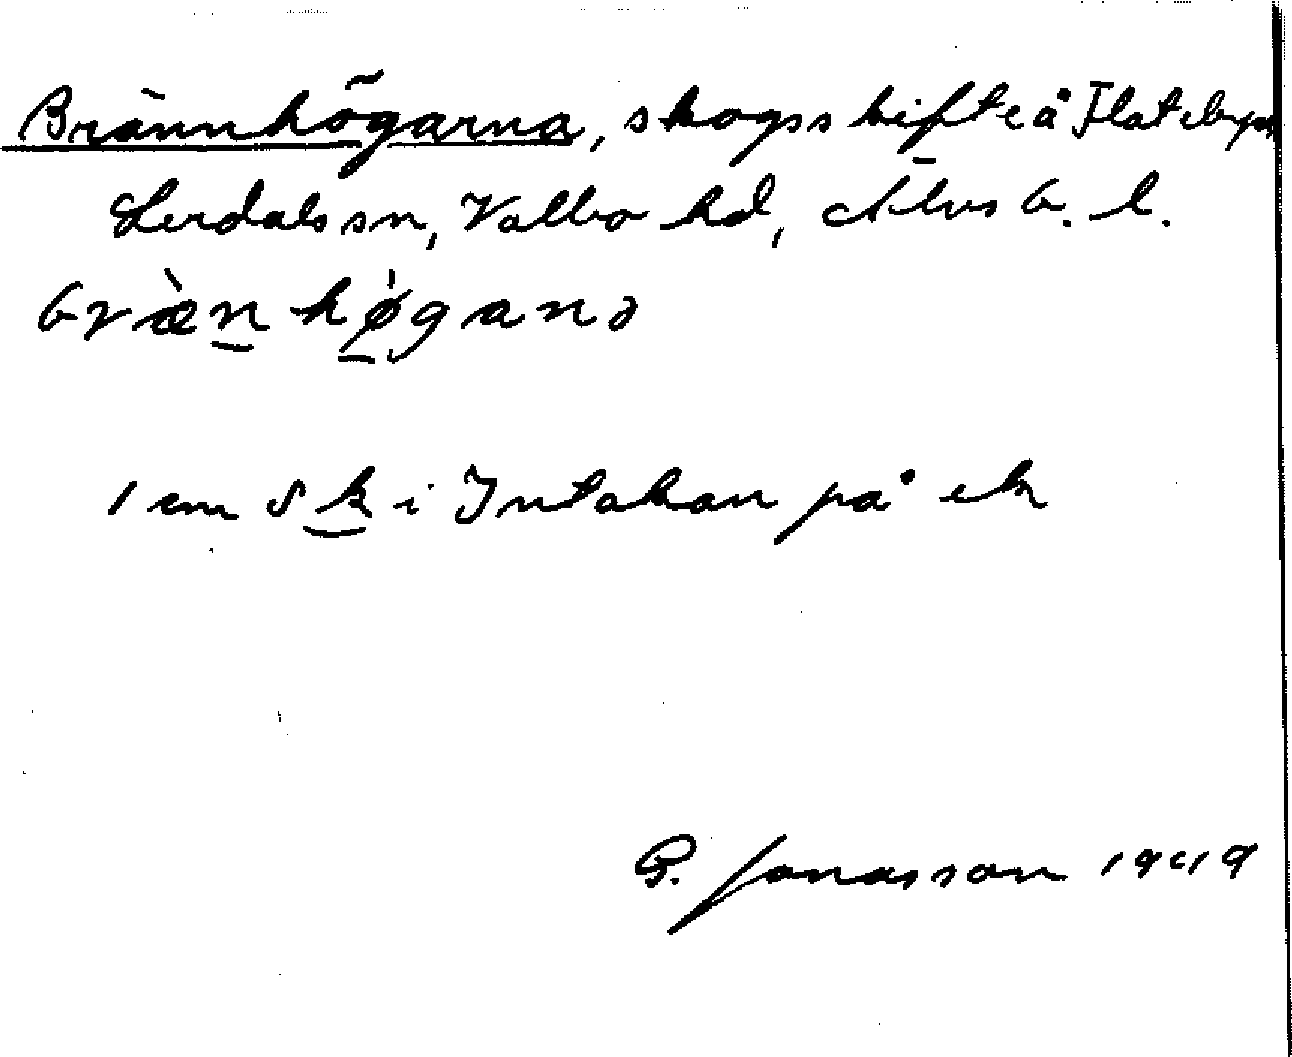 Brännhögarna, skogsskifte å Flateby
Lerdals sn, Valbo hd, Älvsb. l.
bræ̀nhø̍ganə
1 cm S k i Intakan på ek
G. Jonasson 1949